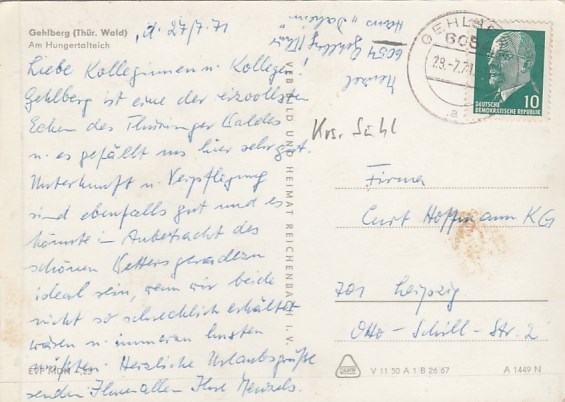 Gehlberg (Thür. Wald)
Am Hungertalteich
d. 27/7.71
Liebe Kolleginnen u. Kollegen!
Gehlberg ist eine der reizvollsten
Ecken des Thüringer Waldes
u. es gefällt uns hier sehr gut.
Unterkunft u. Verpflegung
sind ebenfalls gut und es
könnte in Anbetracht des
schönen Wetters geradezu
ideal sein, wenn wir beide
nicht so schrecklich erkältet
wären u. immerzu husten
müßten. Herzliche Urlaubsgrüße
senden Ihnen allen Ihre Menzels.
EVP MDN
Menzel
6054 Gehlberg/Thür
Haus "Daheim"
VEB BILD UND HEIMAT REICHENBACH I. V.
GEHLBERG
605
28.-7.71
a
DEUTSCHE
DEMOKRATISCHE REPUBLIK
10
Krs. Suhl
Firma
Curt Hoffmann KG
701 Leipzig
Otto-Schill-Str. 2
V 11 50 A 1 B 26 67
A 1449 N